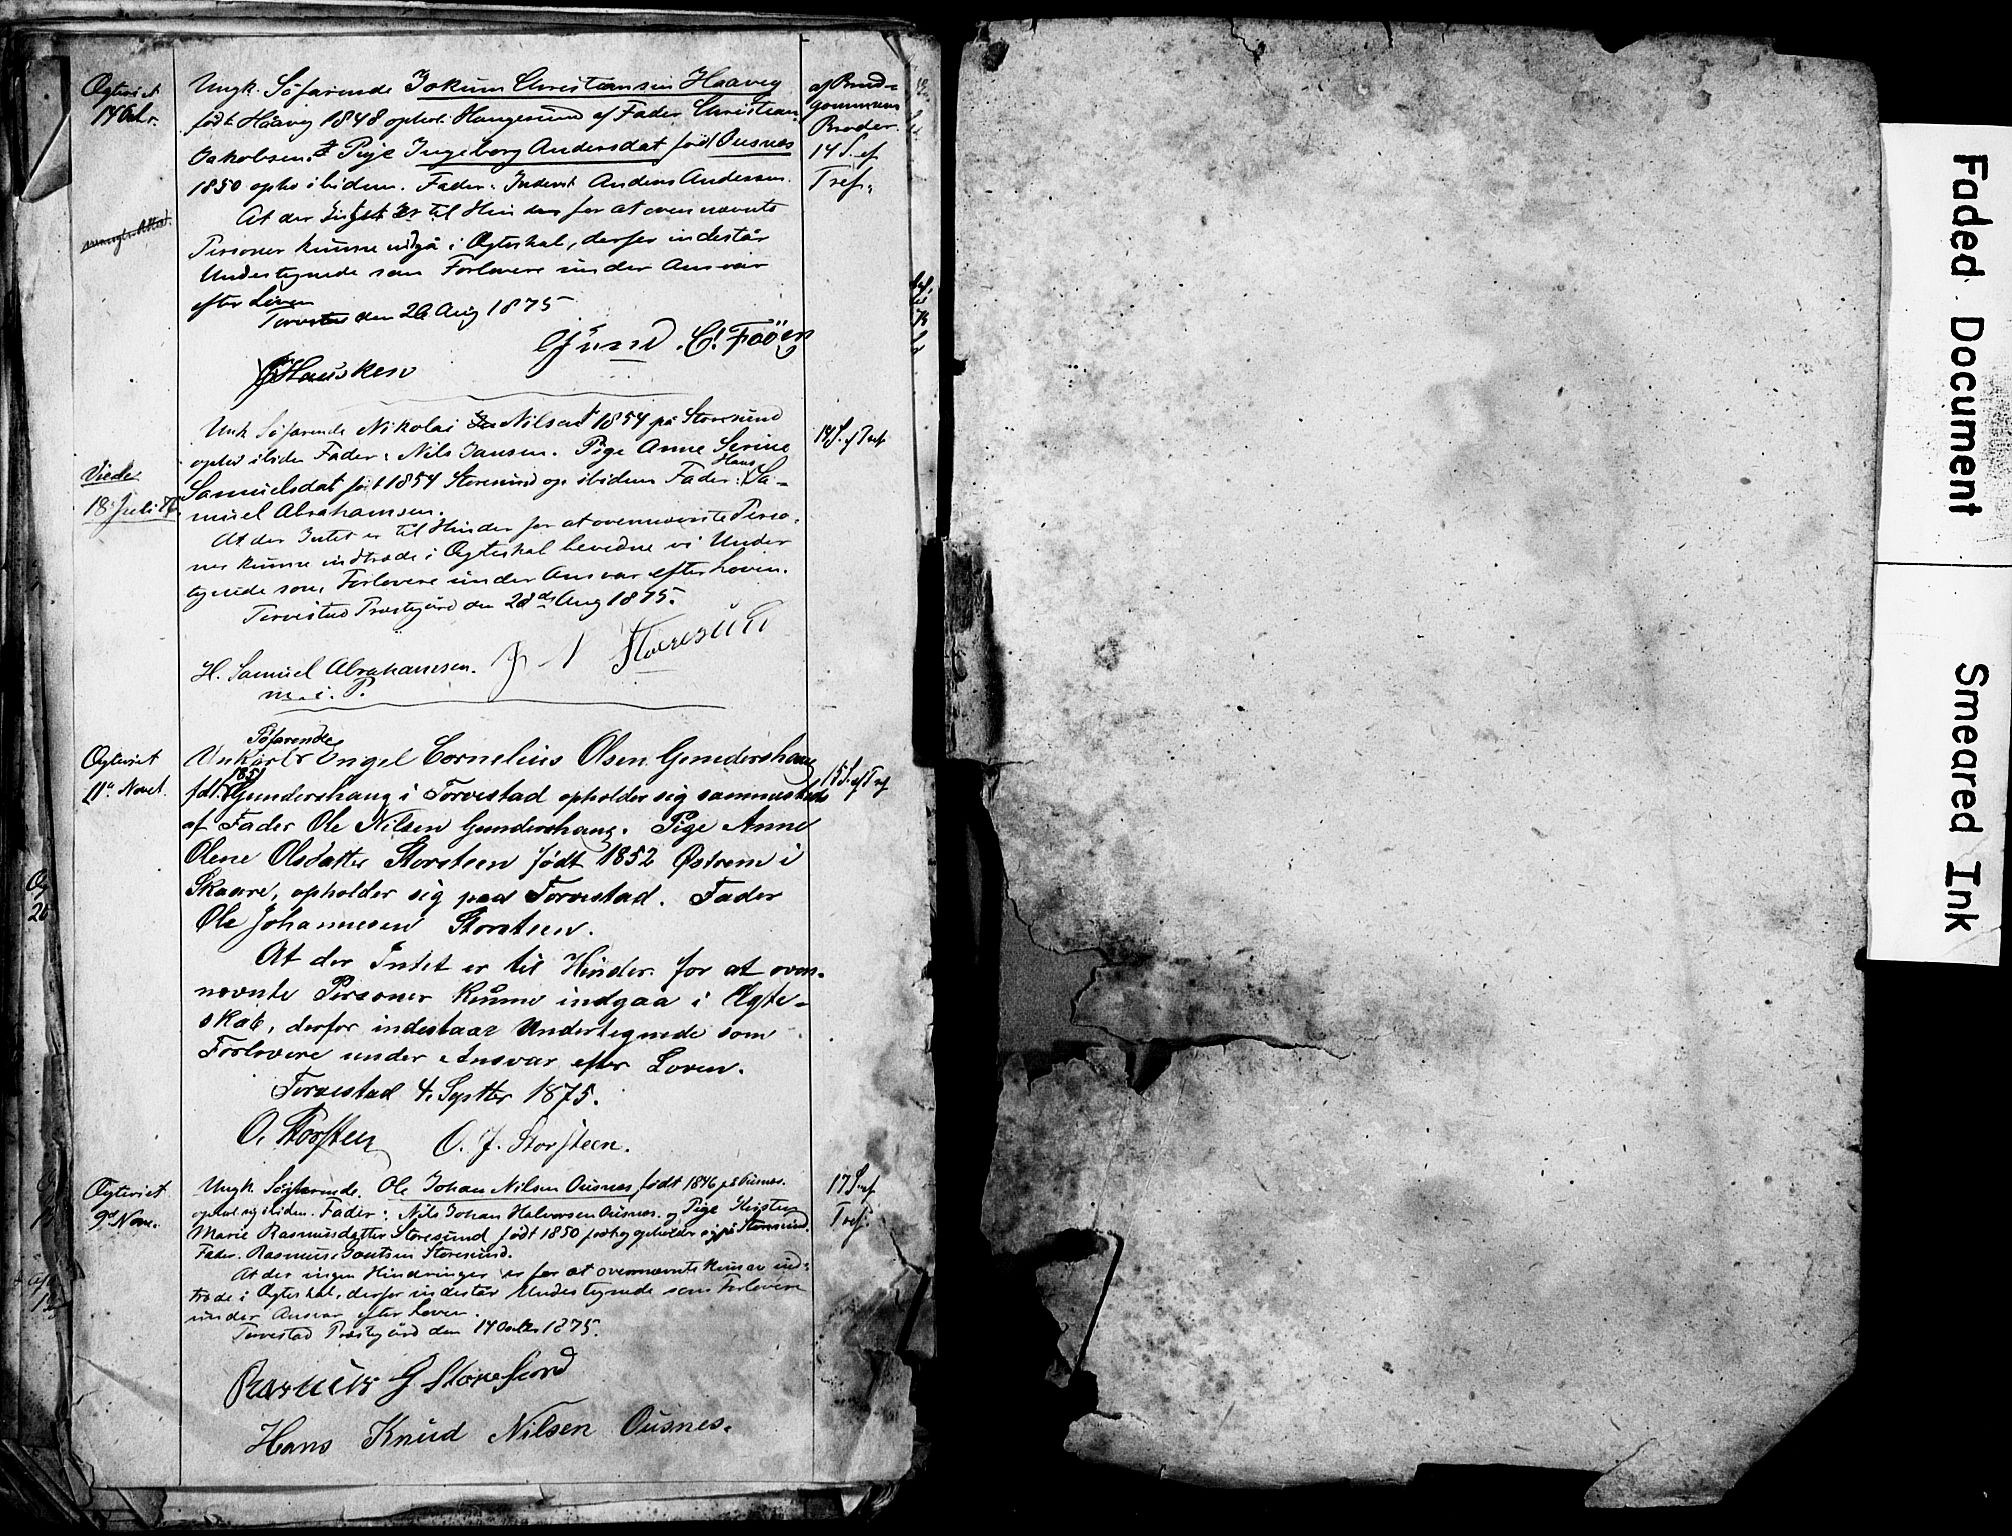 Ægteviet
14 Octr.
Ungk. Söfarende Jokum Christiansen Haaveg
född Haaveg 1848 ophol. Haugesund af Fader Christian
Jakobsen. & Pige Ingeborg Andersdat född Ousnes
1850 opho ibidem. Fader: Inderst Anders Andersen.
At der Intet er til Hinder for at ovennævnte
Personer kunne indgå i Ægteskab, derfor indestår
Undertegnede som Forlovere under Ansvar
efter Loven
Torvestad den 26 Aug 1875
C! Foöen
Hausken
af Brud-
gommens
Broder.
14 S. ef
Tref.
Viede
18 Juli 76.
Unk Söfarende Nikolai Nilsen f 1854 på Storesund
ophol ibidem Fader: Nils Jansen. Pige Anne Serine
Samuelsdat född 1854 Storesund op. ibidem Fader: Hans Sa-
muel Abrahamsen.
At der Intet er til Hinder for at ovennævnte Perso-
ner kunne indtræde i Ægteskab bevidne vi Under
tegnede som Forlovere under Ansvar efter Loven.
Torvestad Præstegård den 28de Aug 1875.
H. Samuel Abrahamsen.
m. i. P.
Storesund
14 S. ef Tref
Ægteviet
11te Novet.
Söfarende
Unkarl Engel Cornelius Olsen Gundershaug
1851
fdt. Gundershaug i Torvestad opholder sig sammesteds
af Fader Ole Nilsen Gundershaug. Pige Anne
Olene Olsdatter Storsteen født 1852 Østrem i
Skaare, opholder sig paa Torvestad. Fader
Ole Johannesen Storsteen.
At der Intet er til Hinder for at oven-
nævnte Personer kunne indgaa i Ægte-
skab, derfor indestaar Undertegnede som
Forlovere under Ansvar efter Loven.
Torvestad 4. Septbr 1875.
O. Storsteen
O. J. Storsteen.
15 S. ef Tref
Ægteviet
9de Nove.
Ungk. Söfarende Ole Johan Nilsen Ousnes født 1846 på Ousnes.
ophol sig ibidem. Fader: Nils Johan Halvorsen Ousnes. og Pige Kirsten
Marie Rasmusdatter Storesund født 1850 og opholder sig på Storesund.
Fader. Rasmus Storesund.
At der ingen Hindringer er for at ovennævnte kunne ind-
træde i Ægteskab, derfor indestår Undertegnede som Forlovere
under Ansvar efter Loven.
Torvestad Præstegård den 14 Octbr 1875.
Rasmus G Storesund
Hans Knud Nilsen Ousnes.
17 S. ef
Tref.
Faded Document
Smeared Ink